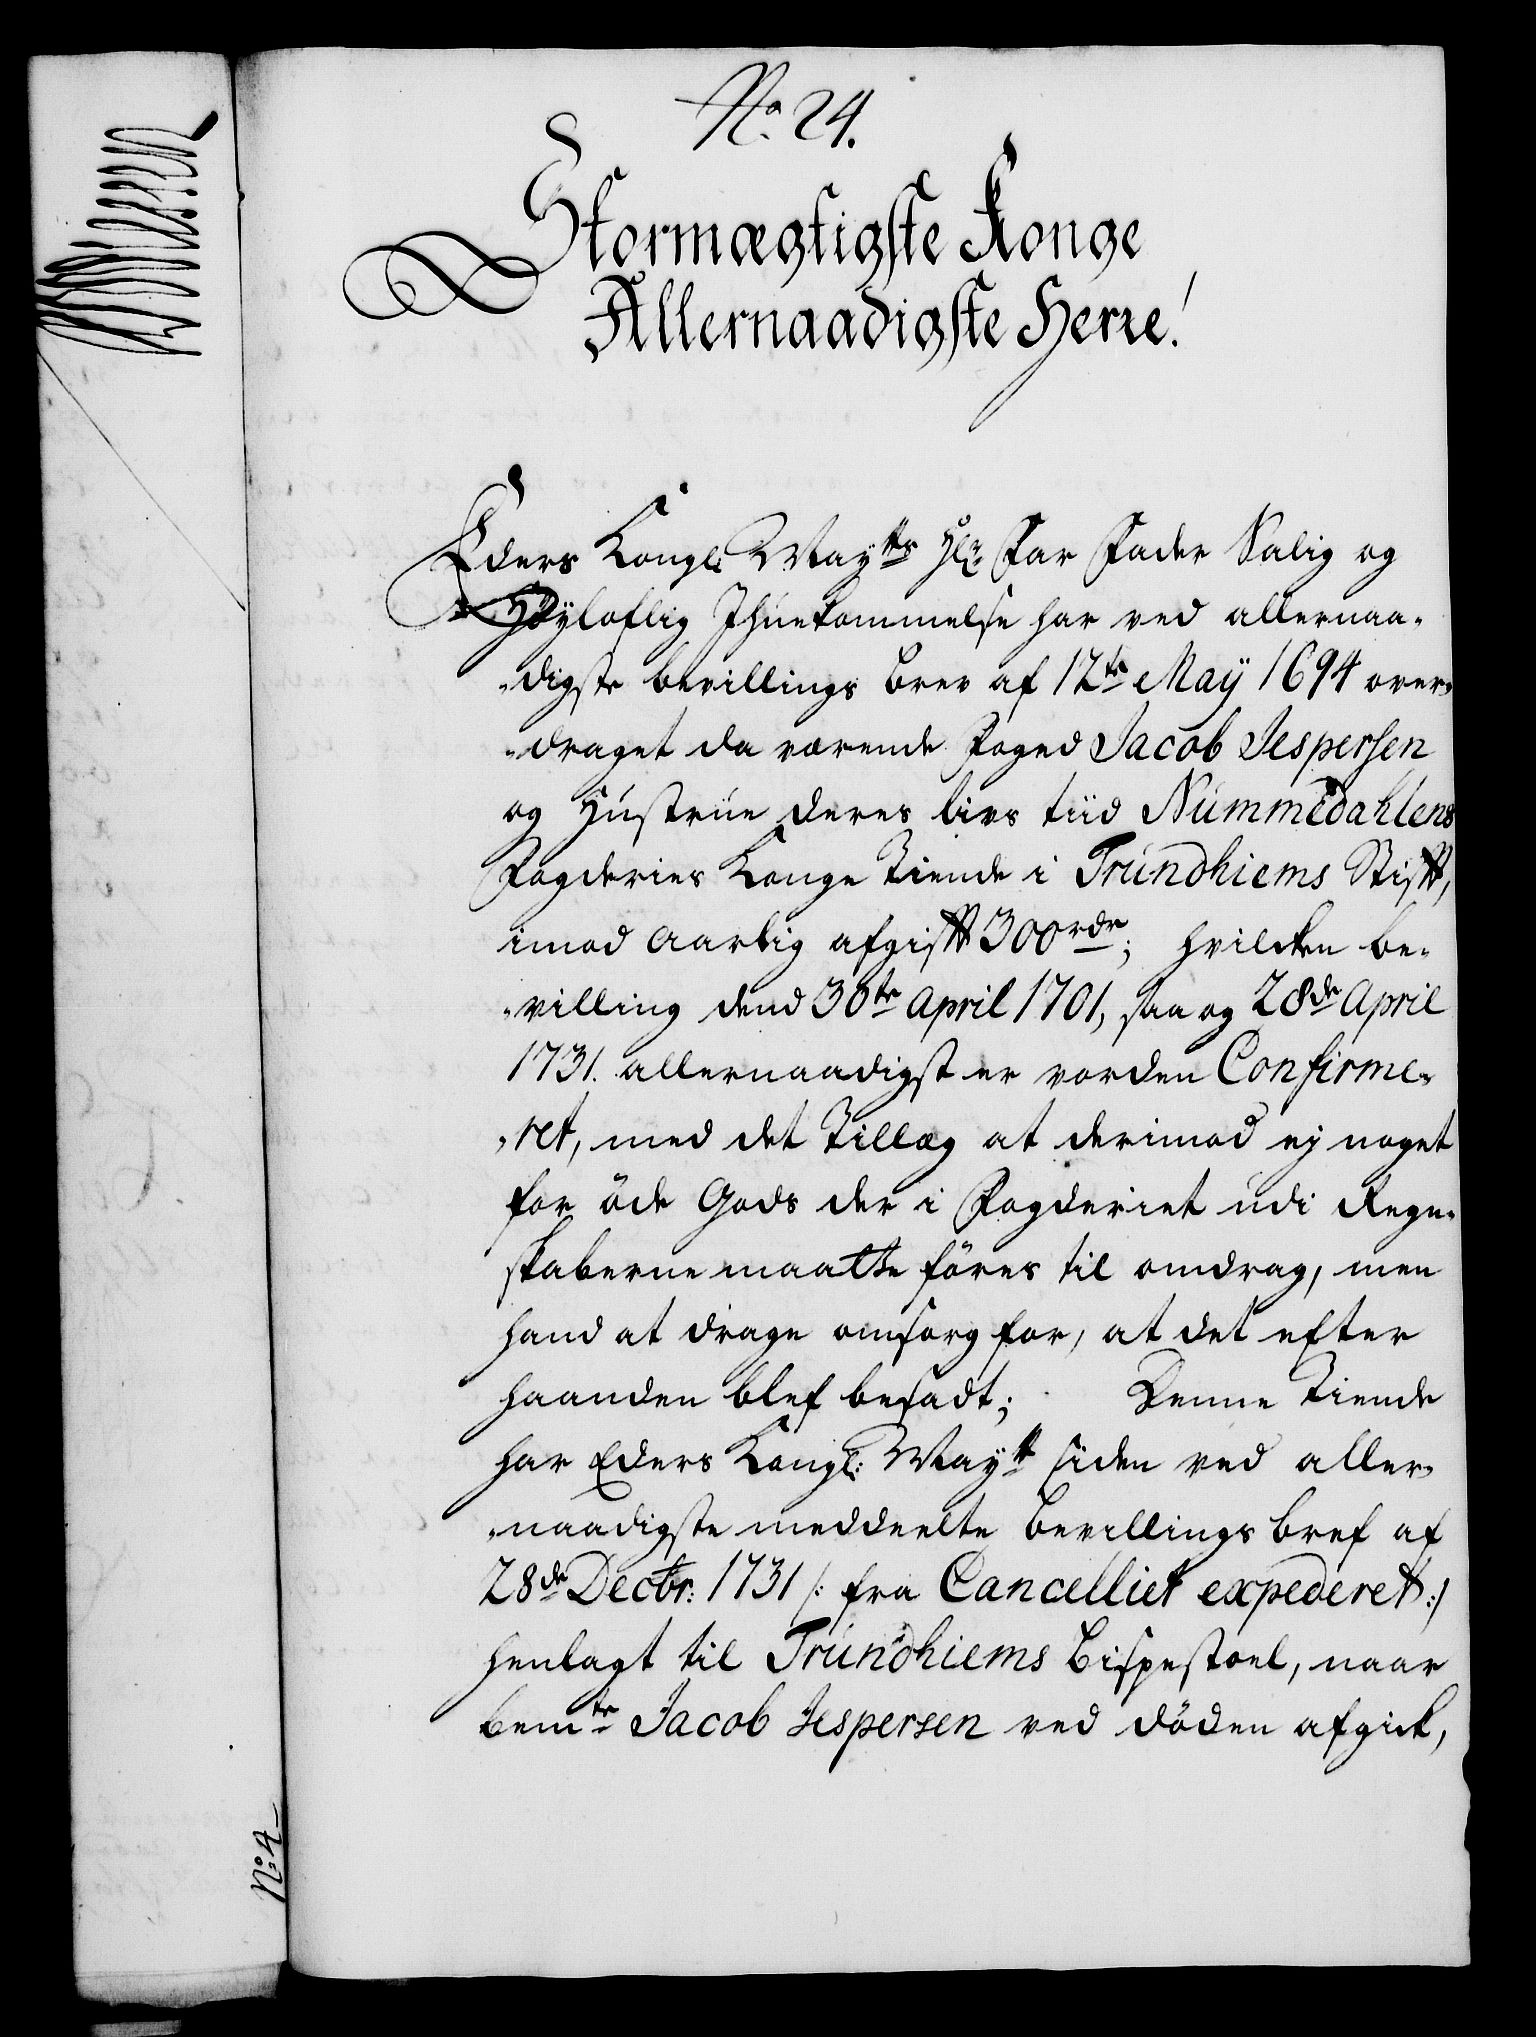 No. 24.
Stormægtigste Konge
Allernaadigste Herre!
Eders Kongl: Maytts Hr: Far Fader Salig og
Høyloflig Ihuekommelse har ved allernaa-
-digste bevillings brev af 12te May 1694 over-
-draget da værende Foged Jacob Jespersen
og Hustrue deres livs tiid Nummedahlens
Fogderies Konge Tiende i Trundhiems Stifft,
imod aarlig afgifft 300rdr; hvilcken be-
-villing dend 30te April 1701, saa og 28de April
1731. allernaadigst er vorden Confirme-
-ret, med det Tillæg at derimod ej noget
for öde Gods der i Fogderiet udi Regn-
skaberne maatte föres til omdrag, men
hand at drage omsorg for, at det efter
haanden blef besadt; Denne Tiende
har Eders Kongl: Maytt siden ved aller-
-naadigste meddeelte bevillings bref af
28de Decbr: 1731 /: fra Cancelliet expederet :/
henlagt til Trundhiems bispestoel, naar
bemte Jacob Jespersen ved döden afgick,
No: 4